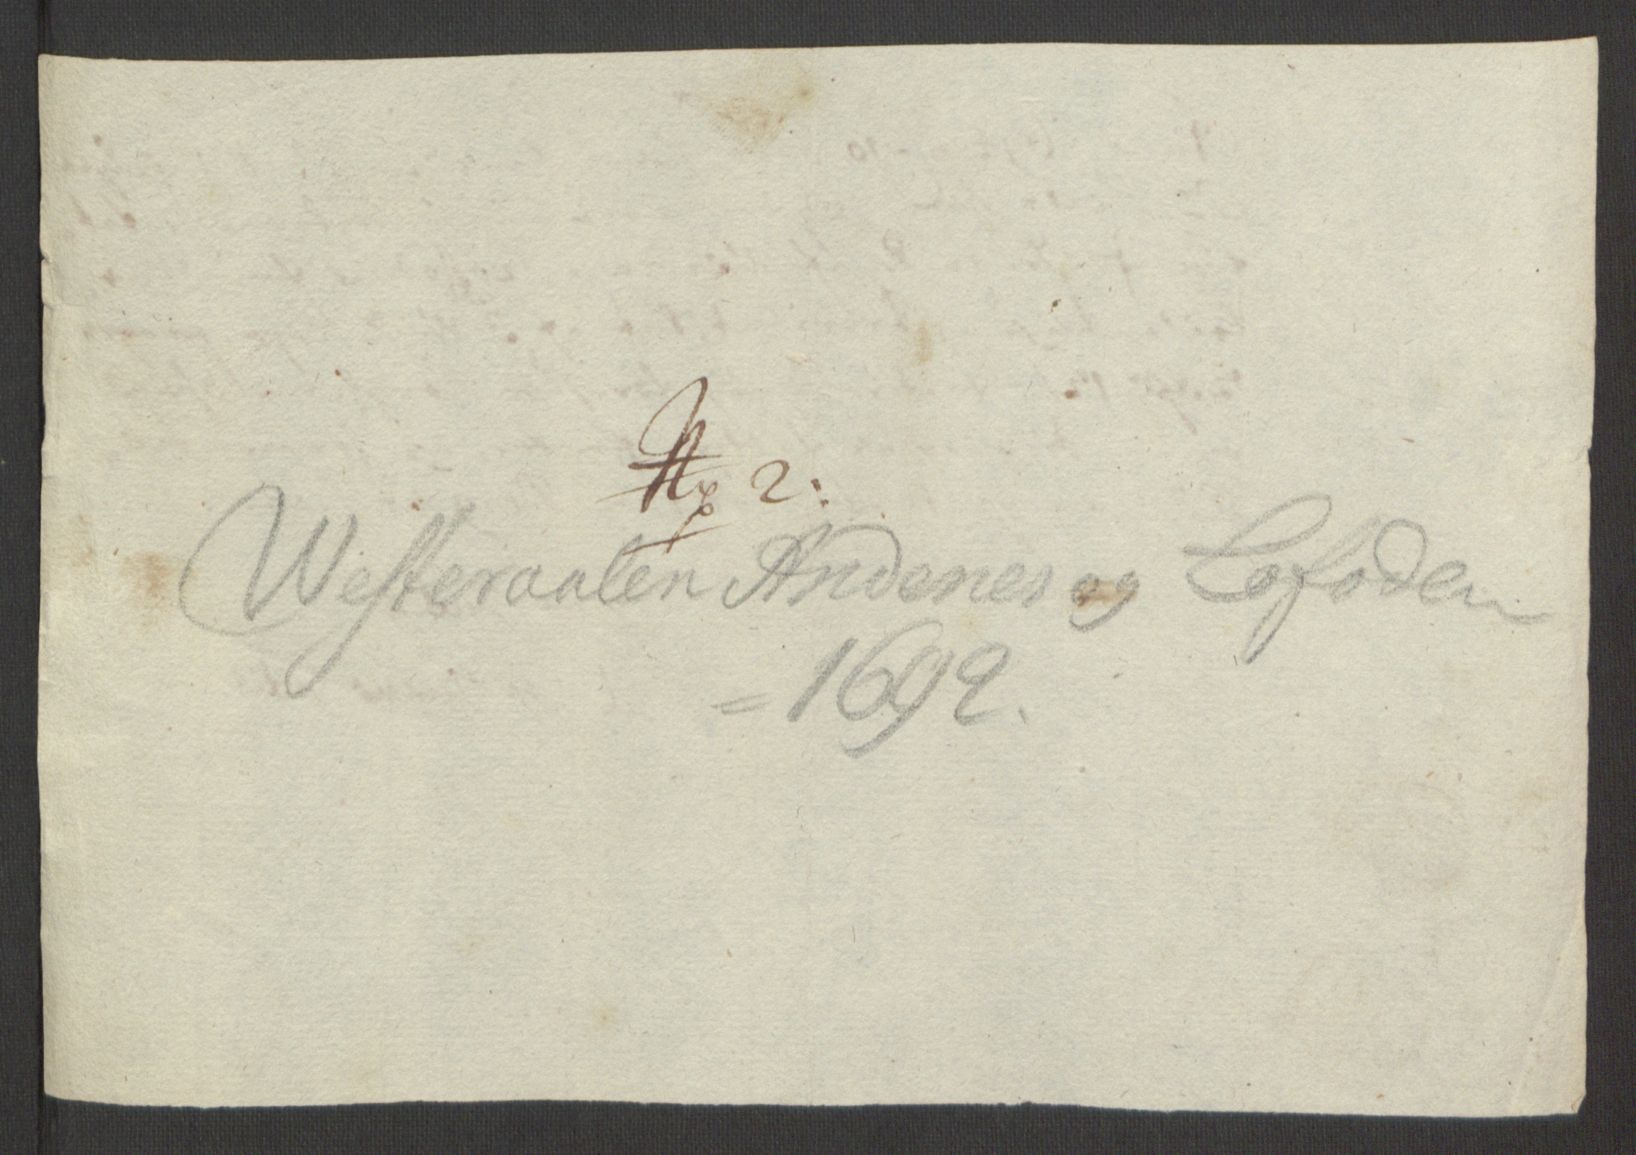 No 2:
Westeraalen Andenes og Lofoden
= 1692.